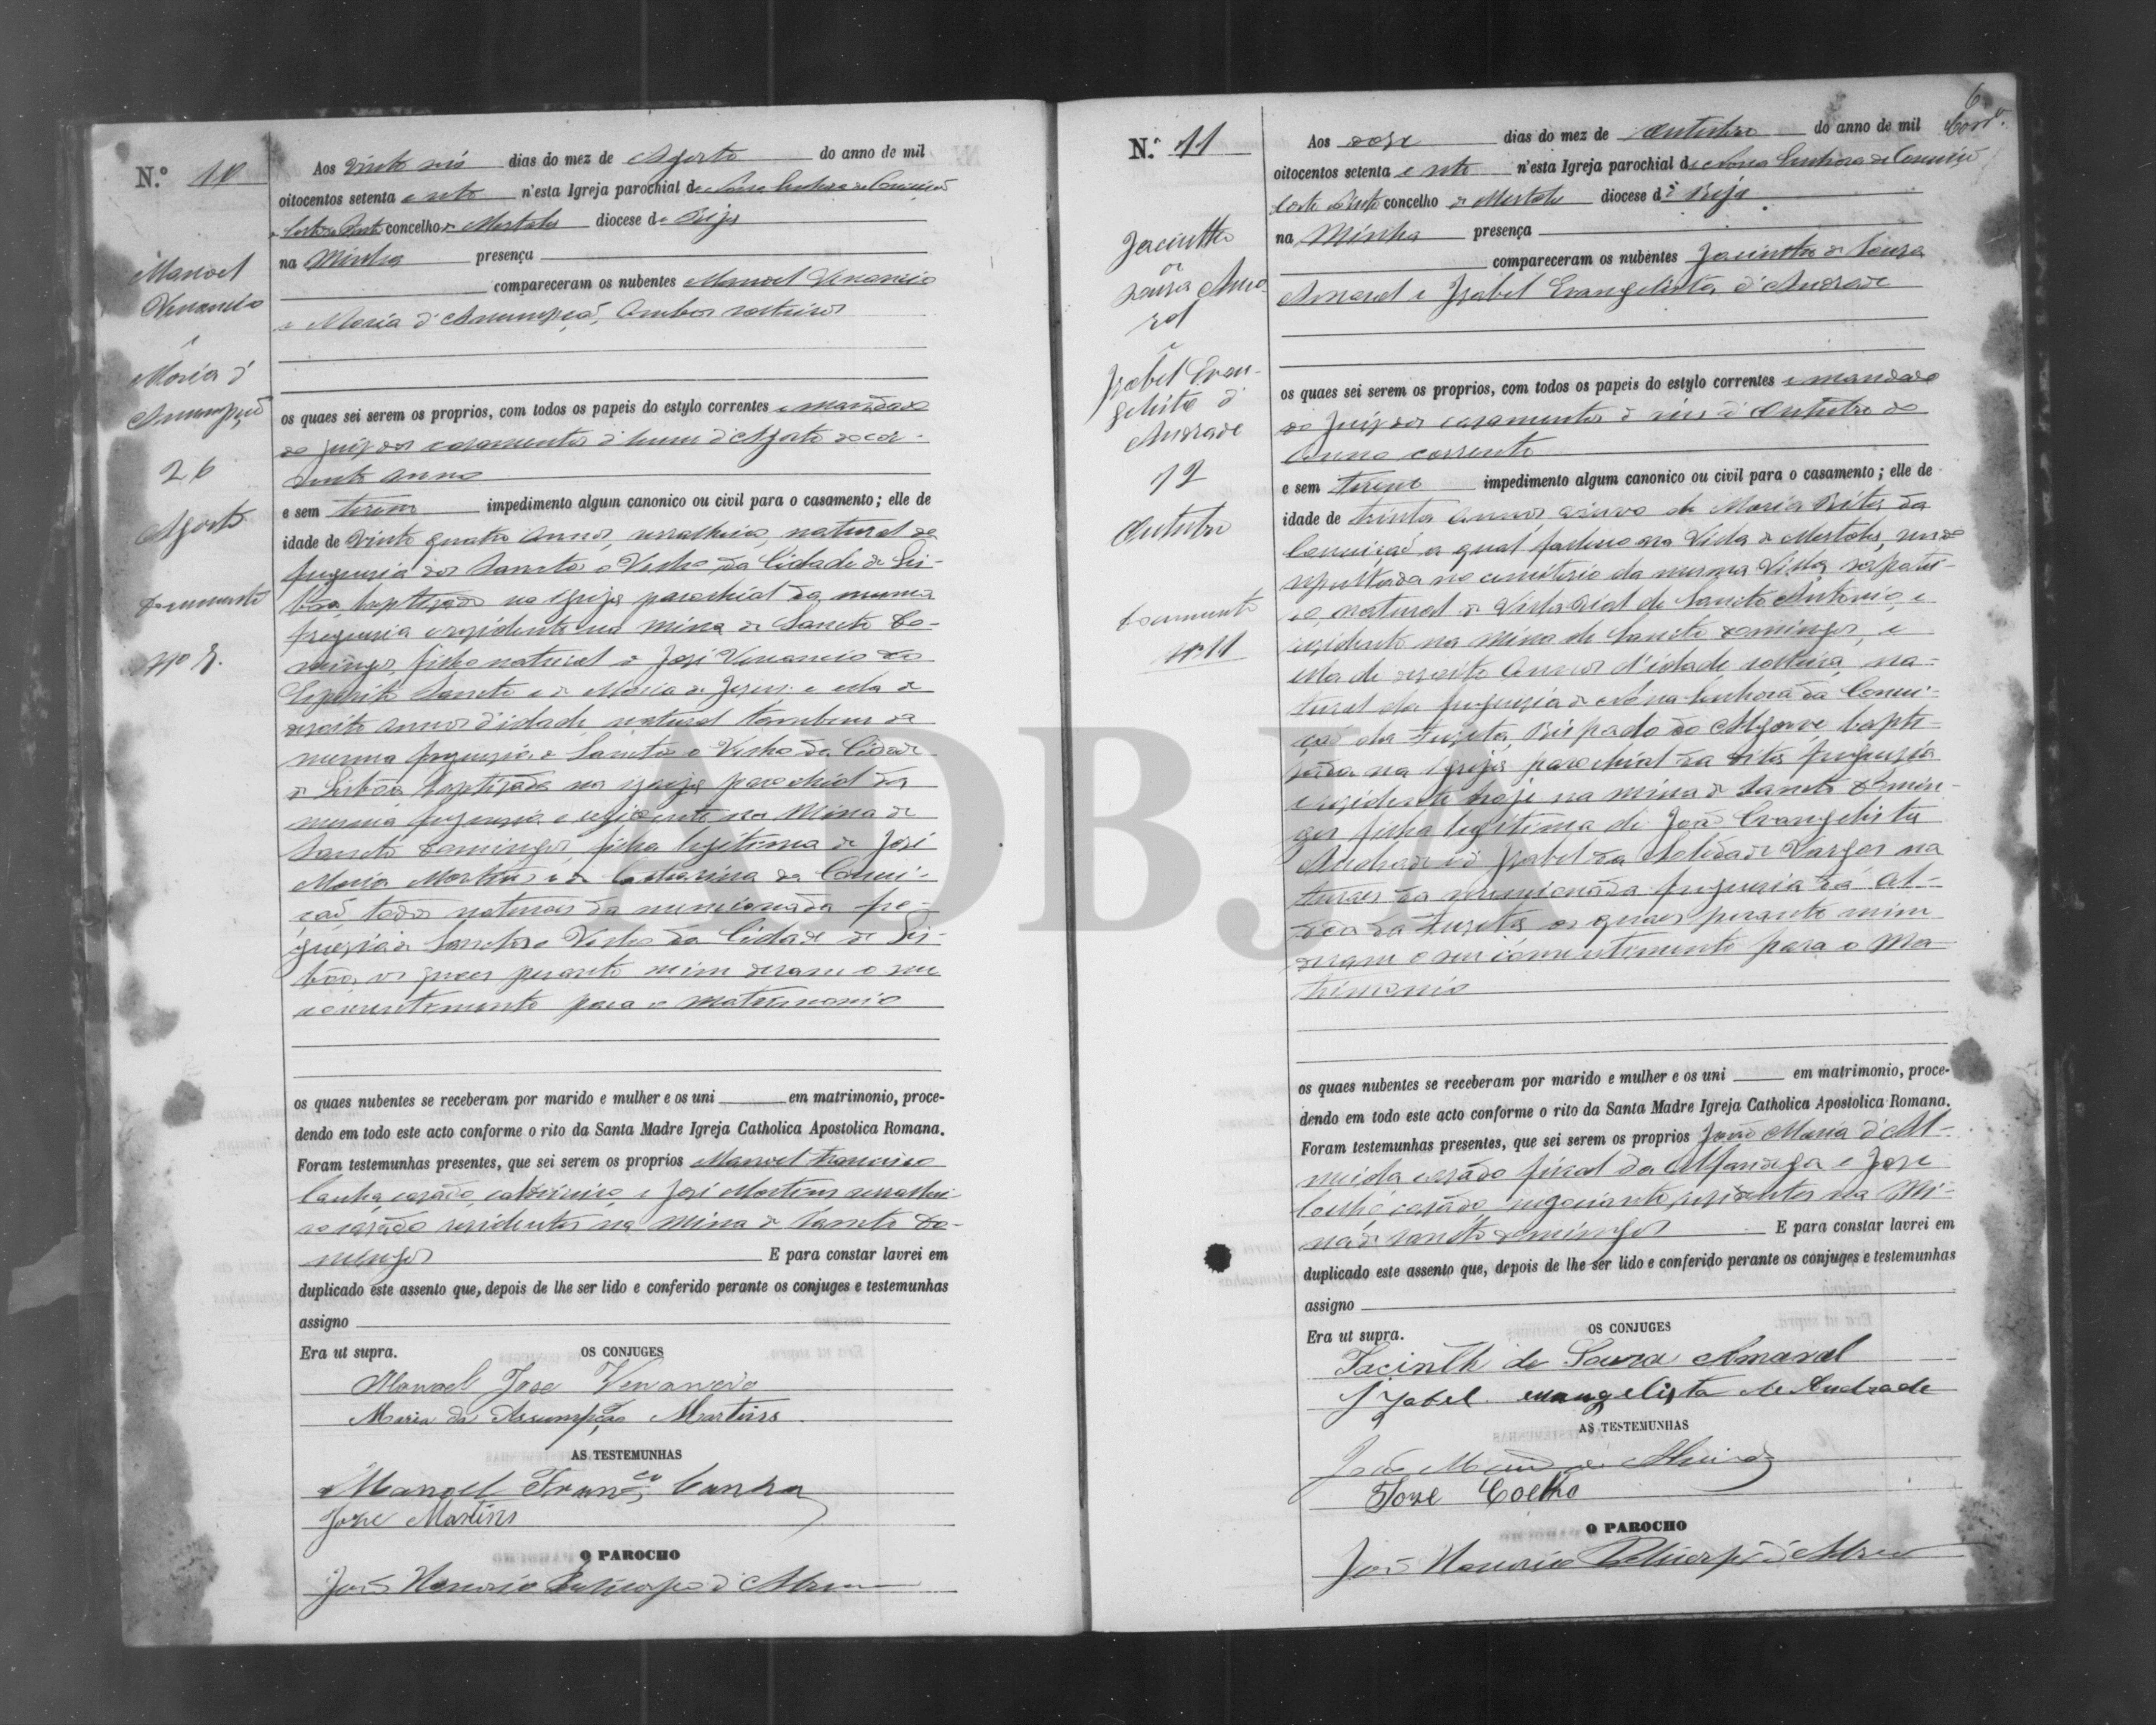 N.º 10
Manoel
Venancio
e
Maria d'
Assumpção
26
Agosto
Documento
Nº 9.
Aos vinte seis dias do mez de Agosto do anno de mil
oitocentos setenta e sete n'esta Igreja parochial de Nossa Senhora da Conceição
concelho de Mertola diocese de Beja
na Minha presença
compareceram os nubentes Manoel Venancio
e Maria d'Assumpção, ambos solteiros
os quaes sei serem os proprios, com todos os papeis do estylo correntes e mandado
do Juiz dos casamentos d'hum d'Agosto do cor-
rente anno
e sem terem impedimento algum canonico ou civil para o casamento; elle de
idade de vinte quatro annos, serralheiro natural da
freguesia dos Sanctos o Velho da Cidade de Lis-
boa baptizado na Igreja parochial da mesma
freguesia e residente na mina de Sancto Do-
mingos, filho natural de José Venancio do
Espirito Sancto e de Maria de Jesus: e ella de
desoito annos d'idade, natural tambem da
mesma freguesia de Sanctos o Velho da Cidade
de Lisboa baptizada na igreja parochial da
mesma freguesia e residente na Mina de
Sancto Domingos, filha legitima de José
Maria Martins e de Catharina da Concei-
ção todos naturaes da mencionada fre-
guesia de Sanctos o Velho da Cidade de Lis-
boa, os quaes perante mim deram o seu
consentimento para o matrimonio
os quaes nubentes se receberam por marido e mulher e os uni em matrimonio, proce-
dendo em todo este acto conforme o rito da Santa Madre Igreja Catholica Apostolica Romana.
Foram testemunhas presentes, que sei serem os proprios Manoel Francisco
Cunha, casado, e José Martins serralhei-
ro casado residentes na Mina de Sancto Do-
mingos E para constar lavrei em
duplicado este assento que, depois de lhe ser lido e conferido perante os conjuges e testemunhas
assigno
Era ut supra.
OS CONJUGES
Manoel Jose Venancio
Maria da Assumpção Martins
AS TESTEMUNHAS
Manoel Franco Cunha
Joze Martins
O PAROCHO
João Honorio Policarpo d'Abreu
6
N.º 11
Jacintho
de
Souza Ama-
ral
e
Izabel Evan-
gelista d'
Andrade
12
Outubro
Documento
Nº 11
Aos doze dias do mez de Outubro do anno de mil
oitocentos setenta e sete n'esta Igreja parochial de Nossa Senhora da Conceição
concelho de Mertola diocese de Beja
na Minha presença
compareceram os nubentes Jacintho de Souza
Amaral e Izabel Evangelista d'Andrade
os quaes sei serem os proprios, com todos os papeis do estylo correntes e mandado
do Juiz dos casamentos de seis d'Outubro do
anno corrente
e sem terem impedimento algum canonico ou civil para o casamento; elle de
idade de trinta annos, viuvo de Maria Rita da
Conceição a qual falleceo na Villa de Mertola, sendo
sepultada no cemiterio da mesma Villa, sapatei-
ro, natural de Villa Real de Sancto Antonio, e
residente na Mina de Sancto Domingos, e
ella de desoito annos d'idade, solteira, na-
tural da freguesia de Nossa Senhora da Concei-
ção da Fuzeta, Bispado do Algarve, bapti-
zada na Igreja parochial da dita freguesia
e residente hoje na mina de Sancto Domin-
gos filha legitima de João Evangelista
Andrade e d'Izabel da Soledade Vargas na
turaes da mencionada freguesia da Al-
dea da Fuzeta, os quaes perante mim
deram o seu consentimento para o Ma-
trimonio
os quaes nubentes se receberam por marido e mulher e os uni em matrimonio, proce-
dendo em todo este acto conforme o rito da Santa Madre Igreja Catholica Apostolica Romana.
Foram testemunhas presentes, que sei serem os proprios João Maria d'Al-
meida casado fiscal da Alfandega e Jose
Coelho casado, negociante, residentes na Mi-
na de Sancto Domingos E para constar lavrei em
duplicado este assento que, depois de lhe ser lido e conferido perante os conjuges e testemunhas
assigno
Era ut supra.
OS CONJUGES
Jacinth de Souza Amaral
Izabel evangelista de Andrade
AS TESTEMUNHAS
João Maria de Almeida
Joze Coelho
O PAROCHO
João Honorio Policarpo d'Abreu
ADBJA